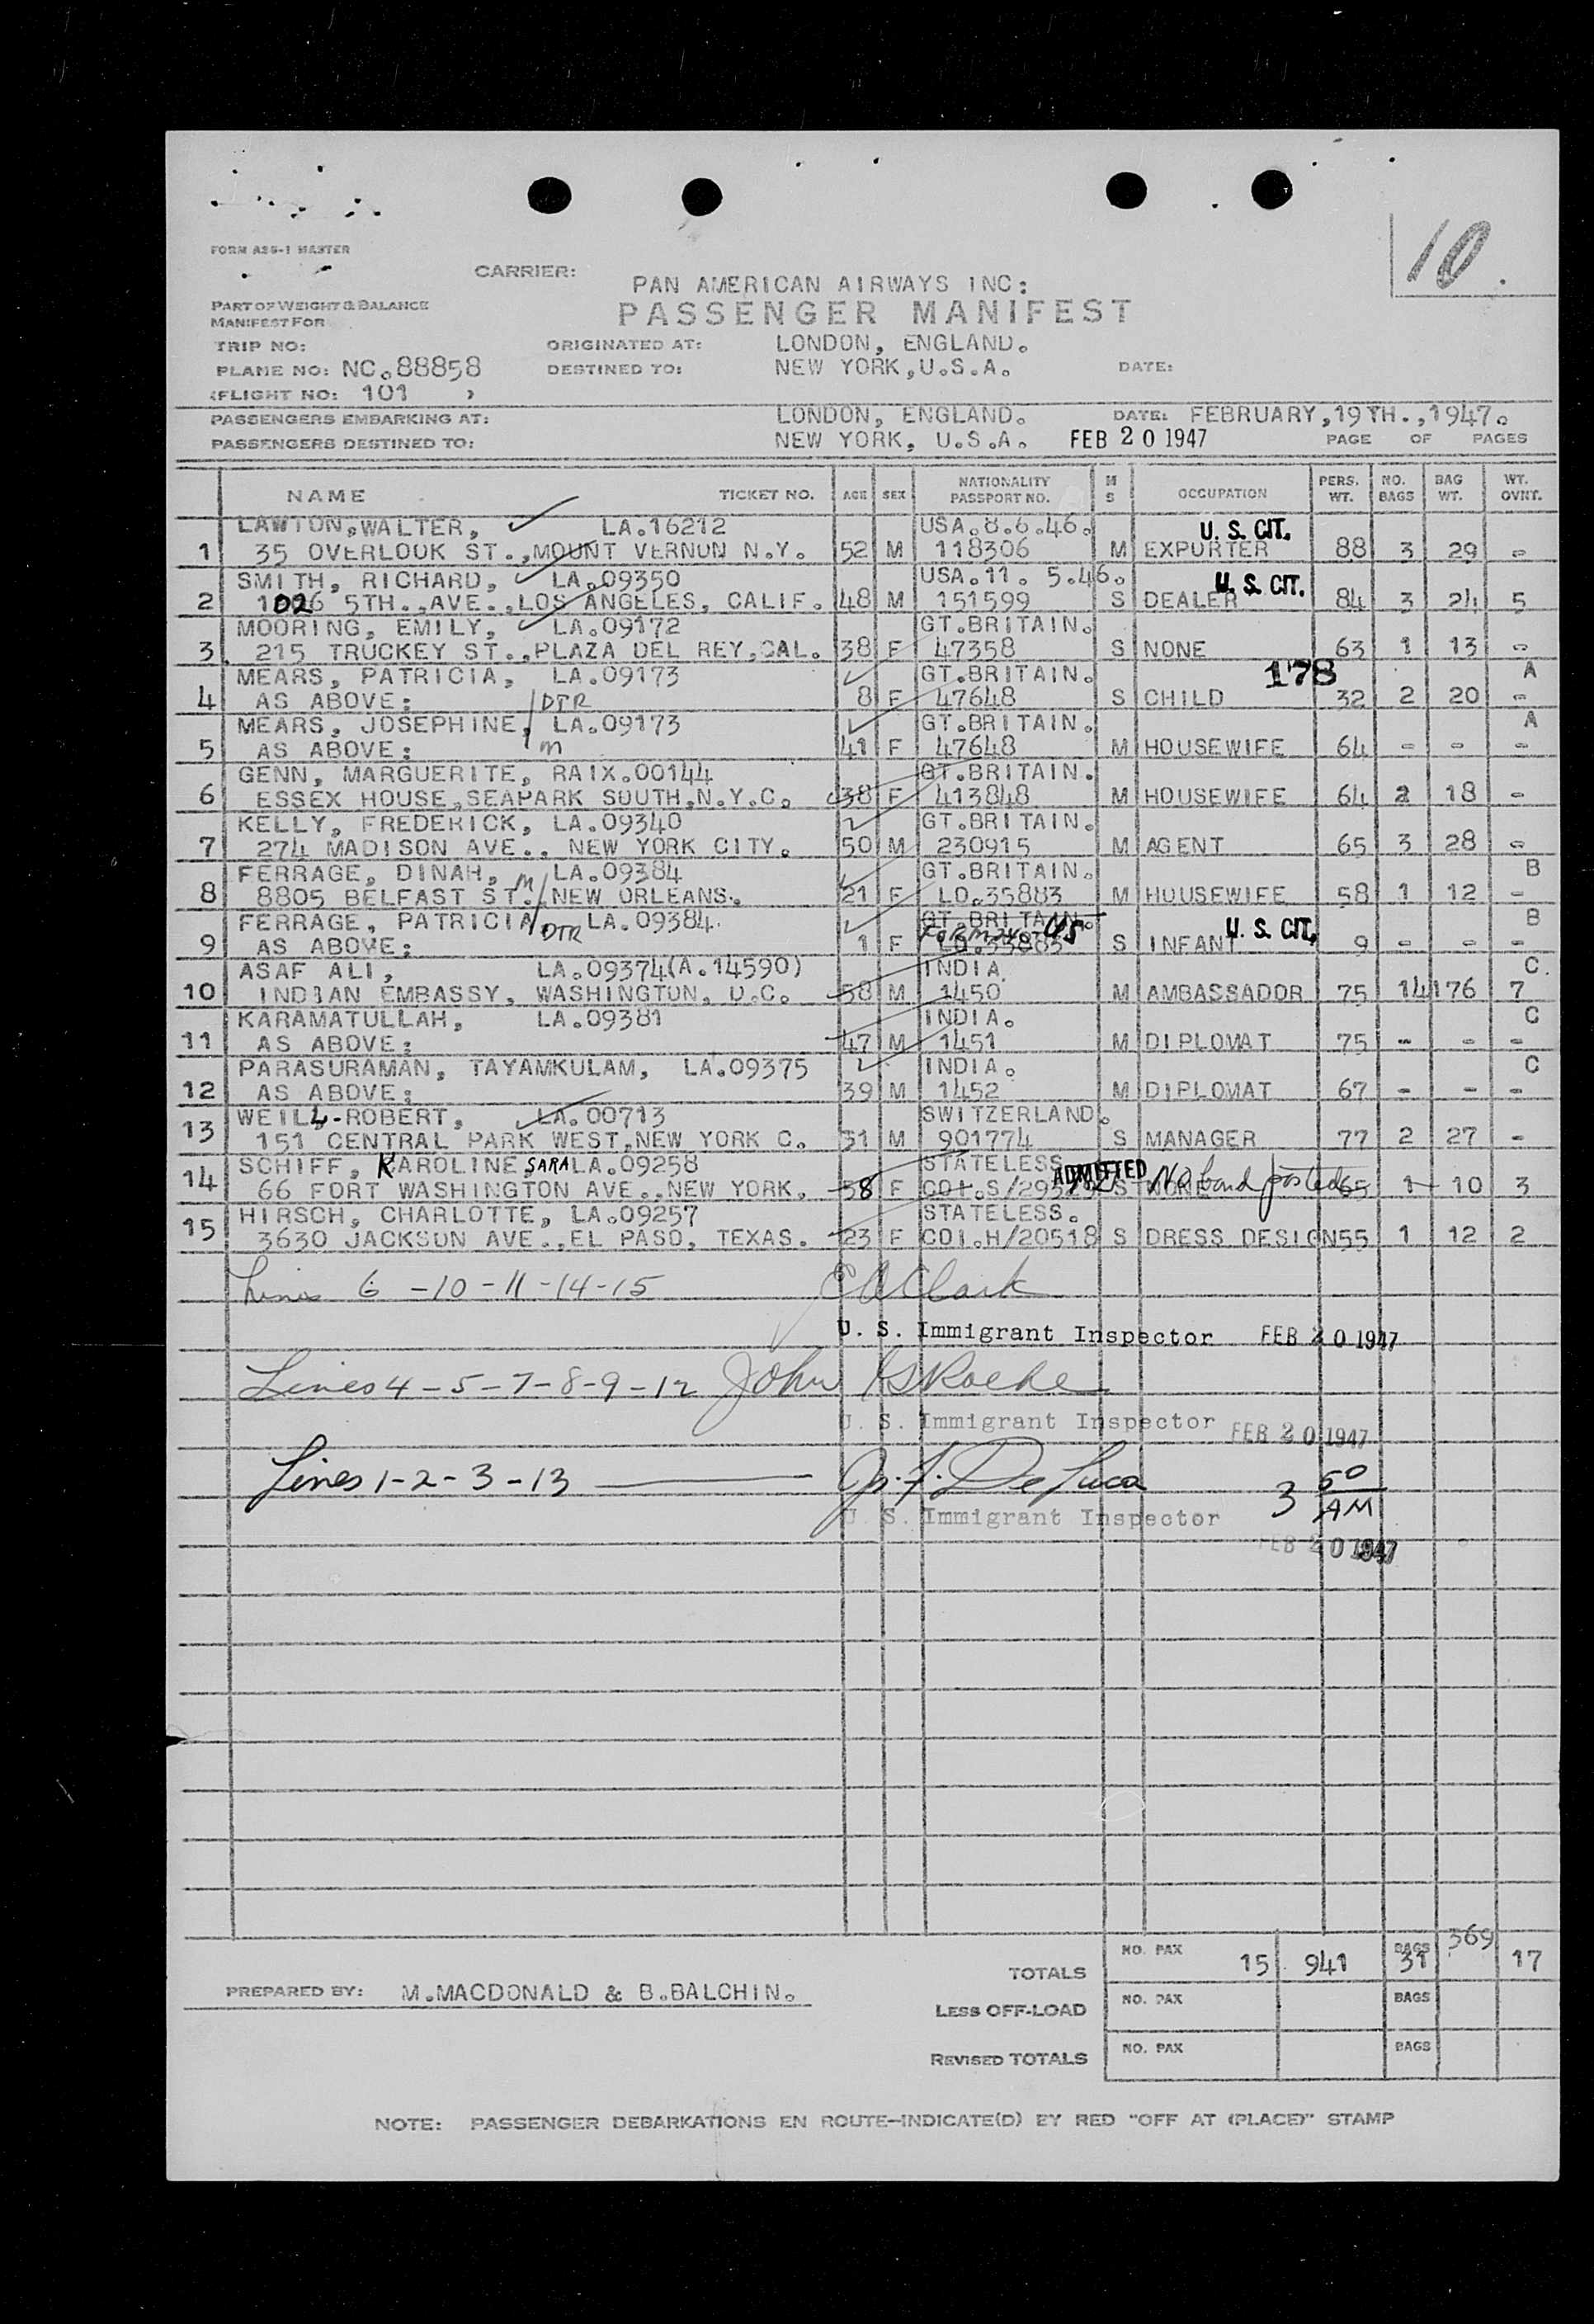 10.
FORM ASS-1 MASTER
CARRIER: PAN AMERICAN AIRWAYS INC:
PART OF WEIGHT & BALANCE
MANIFEST FOR
PASSENGER MANIFEST
TRIP NO: ORIGINATED AT: LONDON, ENGLAND.
PLANE NO: NC.88858 DESTINED TO: NEW YORK,U.S.A. DATE:
(FLIGHT NO: 101 )
PASSENGERS EMBARKING AT: LONDON, ENGLAND. DATE: FEBRUARY,19TH.,1947.
PASSENGERS DESTINED TO: NEW YORK, U.S.A. FEB 20 1947 PAGE OF PAGES
NAME TICKET NO. AGE SEX NATIONALITY PASSPORT NO. M S OCCUPATION PERS. WT. NO. BAGS BAG WT. WT. OVNT.
LAWTON,WALTER, LA.16212 USA.8.6.46. U. S. CIT.
1 35 OVERLOOK ST.,MOUNT VERNON N.Y. 52 M 118306 M EXPORTER 88 3 29 -
SMITH, RICHARD, LA.09350 USA.11. 5.46. U. S. CIT.
2 1026 5TH.,AVE.,LOS ANGELES, CALIF. 48 M 151599 S DEALER 84 3 24 5
MOORING, EMILY, LA.09172 GT.BRITAIN.
3 215 TRUCKEY ST.,PLAZA DEL REY,CAL. 38 F 47358 S NONE 63 1 13 -
MEARS, PATRICIA, LA.09173 GT.BRITAIN. 178 A
4 AS ABOVE: DTR 8 F 47648 S CHILD 32 2 20 -
MEARS, JOSEPHINE, LA.09173 GT.BRITAIN. A
5 AS ABOVE: m 41 F 47648 M HOUSEWIFE 64 - - -
GENN, MARGUERITE, RAIX.00144 GT.BRITAIN.
6 ESSEX HOUSE,SEAPARK SOUTH,N.Y.C. 38 F 413848 M HOUSEWIFE 64 2 18 -
KELLY, FREDERICK, LA.09340 GT.BRITAIN.
7 274 MADISON AVE.. NEW YORK CITY. 50 M 230915 M AGENT 65 3 28 -
FERRAGE, DINAH, m LA.09384 GT.BRITAIN. B
8 8805 BELFAST ST. NEW ORLEANS. 21 F LO.35883 M HOUSEWIFE 58 1 12 -
FERRAGE, PATRICIA, DTR LA.09384. GT.BRITAIN. US U. S. CIT. B
9 AS ABOVE: 1 F S INFANT 9 - - -
ASAF ALI, LA.09374(A.14590) INDIA. C.
10 INDIAN EMBASSY, WASHINGTON, D.C. 58 M 1450 M AMBASSADOR 75 14 176 7
KARAMATULLAH, LA.09381 INDIA. C
11 AS ABOVE: 47 M 1451 M DIPLOMAT 75 - - -
PARASURAMAN, TAYAMKULAM, LA.09375 INDIA. C
12 AS ABOVE: 39 M 1452 M DIPLOMAT 67 - - -
WEILL-ROBERT, LA.00713 SWITZERLAND.
13 151 CENTRAL PARK WEST,NEW YORK C. 31 M 901774 S MANAGER 77 2 27 -
SCHIFF, KAROLINE SARA LA.09258 STATELESS. ADMITTED No bond posted
14 66 FORT WASHINGTON AVE.,NEW YORK. 58 F S 65 1 10 3
HIRSCH, CHARLOTTE, LA.09257 STATELESS.
15 3630 JACKSON AVE.,EL PASO, TEXAS. 23 F COI.H/20518 S DRESS DESIGN 55 1 12 2
Lines 6 -10 -11 -14 -15 E A Clark
U. S. Immigrant Inspector FEB 20 1947
Lines 4 - 5 - 7 - 8 - 9 - 12 John
U. S. Immigrant Inspector FEB 20 1947
Lines 1 - 2 - 3 - 13 De Luca
3 50 AM
U. S. Immigrant Inspector
FEB 20 1947
369
TOTALS NO. PAX 15 941 BAGS 31 17
PREPARED BY: M.MACDONALD & B.BALCHIN.
LESS OFF-LOAD NO. PAX BAGS
REVISED TOTALS NO. PAX BAGS
NOTE: PASSENGER DEBARKATIONS EN ROUTE-INDICATE(D) BY RED "OFF AT (PLACE)" STAMP